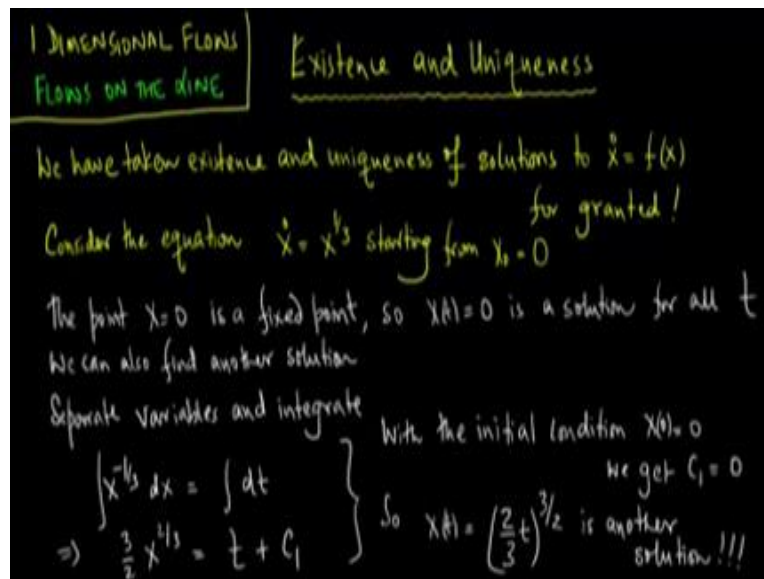 1 DIMENSIONAL FLOWS
FLOWS ON THE LINE
Existence and Uniqueness
We have taken existence and uniqueness of solutions to ẋ = f(x)
for granted!
Consider the equation ẋ = x^{1/3} starting from x₀ = 0
The point x=0 is a fixed point, so x(t)=0 is a solution for all t
We can also find another solution
Separate variables and integrate
∫x^{-1/3} dx = ∫dt
⇒ 3/2 x^{2/3} = t + C₁
With the initial condition x(0)=0
we get C₁ = 0
So x(t) = (2/3 t)^{3/2} is another
solution!!!